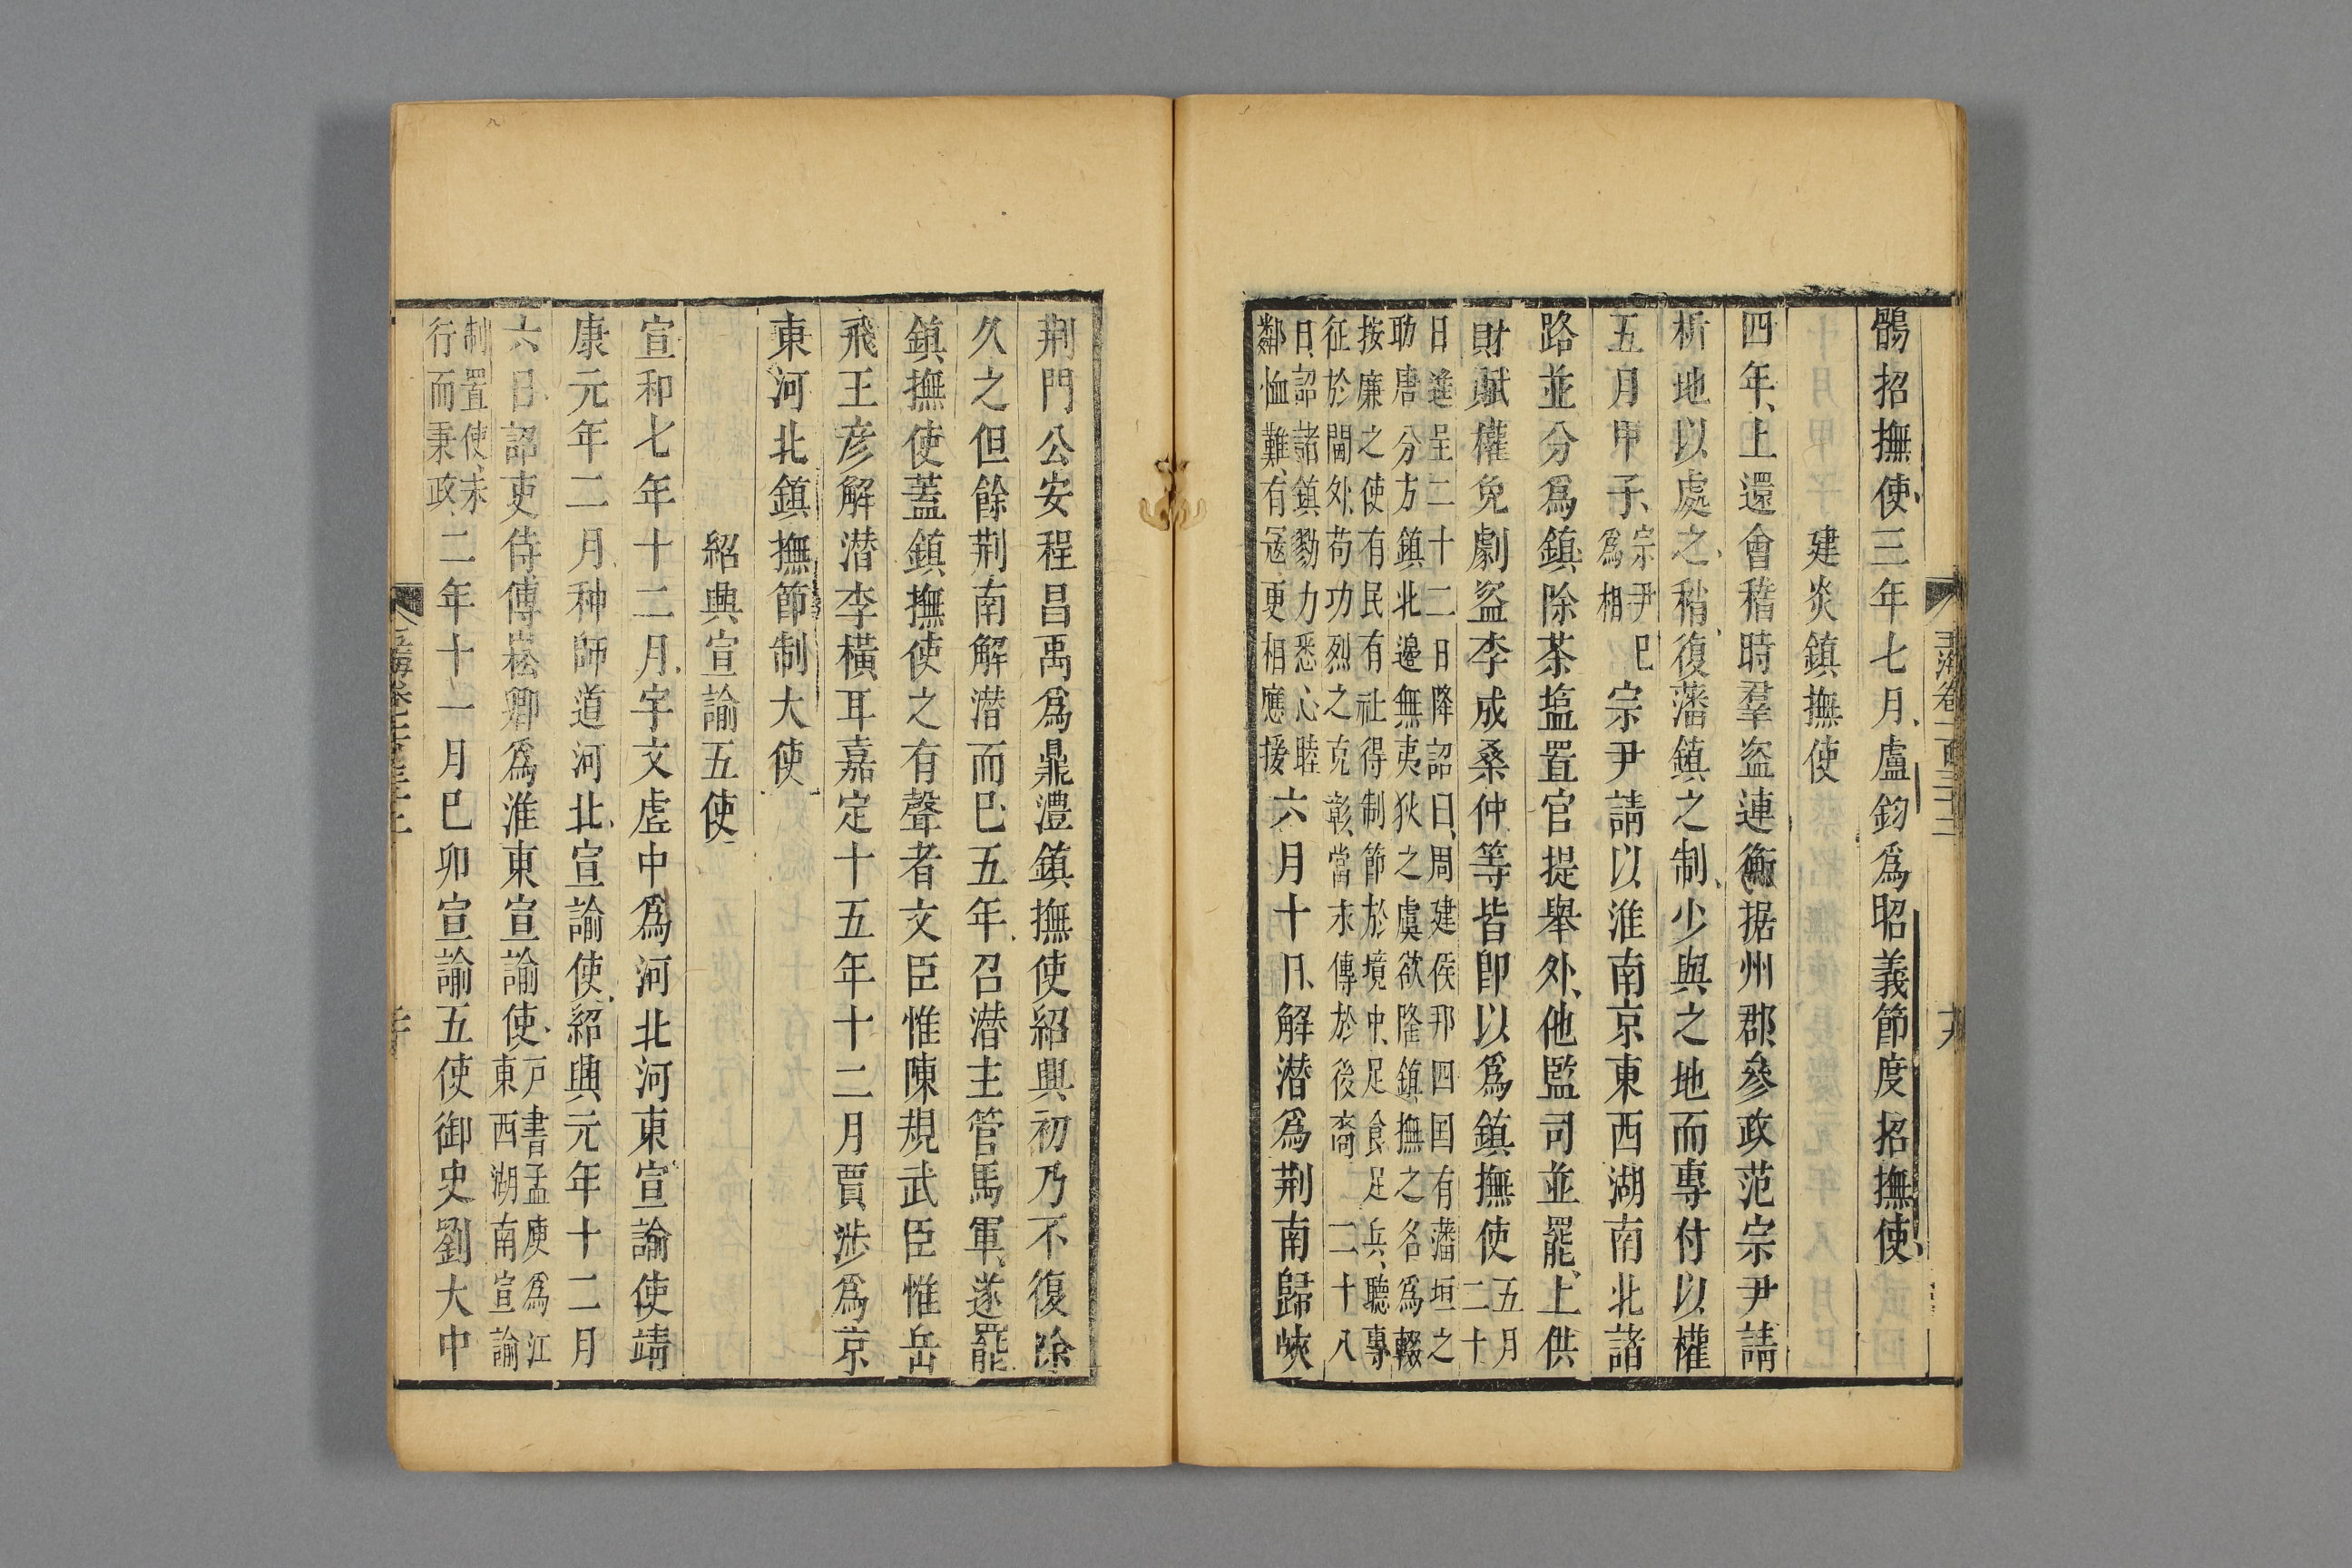 鶻招撫使三年七月盧鈞爲昭義節度招撫使
建炎鎮撫使
四年上還會稽時羣盜連衡据州郡參政范宗尹請
析地以處之稍復藩鎮之制少與之地而專付以權
五月甲子宗尹爲相巳宗尹請以淮南京東西湖南北諸
路並分爲鎮除茶塩置官提舉外他監司並罷上供
財賦權免劇盜李成桑仲等皆卽以爲鎮撫使五月二十
日進呈二十二日降詔曰周建侯邦四国有藩垣之
助唐分方鎮北邊無夷狄之虞欲隆鎮撫之名爲輟
按廉之使有民有社得制節於境中足食足兵聽專
征於閫外苟功烈之克彰當永傳於後裔二十八
日詔諸鎮勠力悉心睦
鄰恤難有冦更相應援六月十日解潜爲荆南歸峽
荆門公安程昌禹爲鼎澧鎮撫使紹興初乃不復除
久之但餘荆南解潜而巳五年召潜主管馬軍遂罷
鎮撫使蓋鎮撫使之有聲者文臣惟陳規武臣惟岳
飛王彦解潜李横耳嘉定十五年十二月賈涉爲京
東河北鎮撫節制大使
紹興宣諭五使
宣和七年十二月宇文虛中爲河北河東宣諭使靖
康元年二月种師道河北宣諭使紹興元年十二月
六日詔吏侍傅崧卿爲淮東宣諭使戸書孟庾爲江東西湖南宣諭
制置使未行而秉政二年十一月巳卯宣諭五使御史劉大中